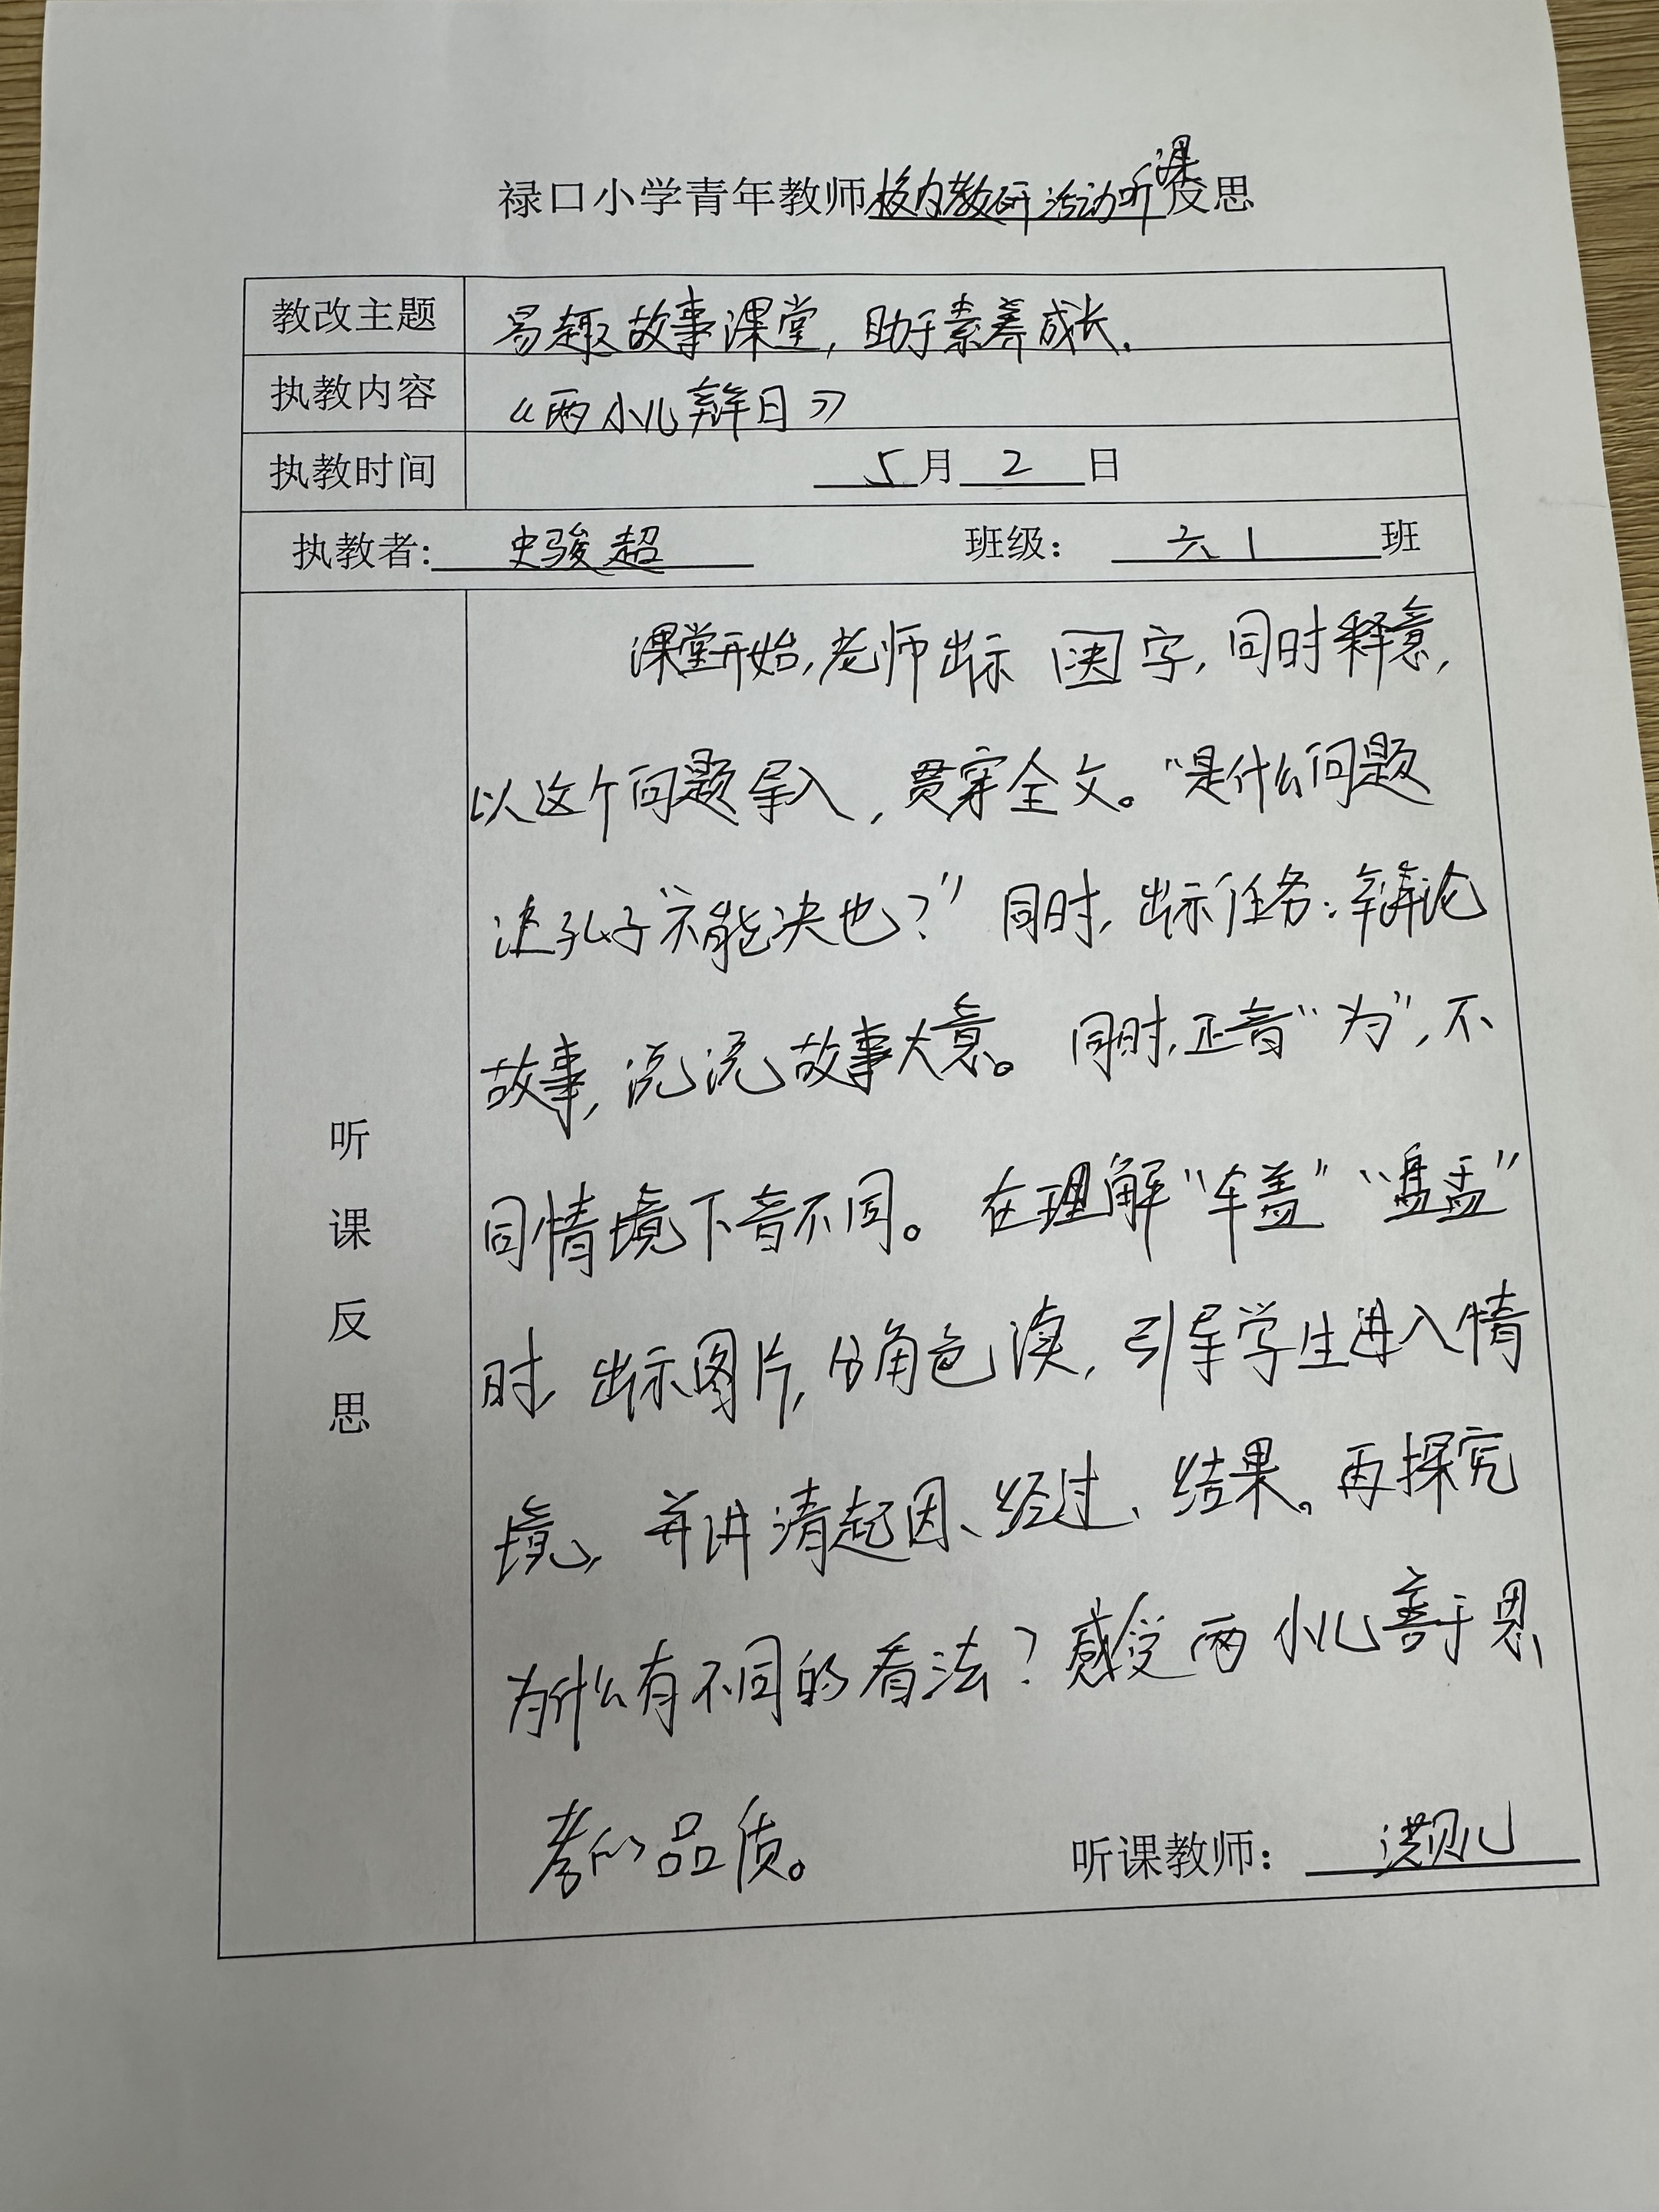 禄口小学青年教师校内教研活动听课反思
教改主题 易趣故事课堂，助于素养成长.
执教内容 《两小儿辩日》
执教时间 5月2日
执教者: 史骏超 班级: 六1班
听课反思
课堂开始,老师出示 决 字,同时释意,
以这个问题导入,贯穿全文。“是什么问题
让孔子“不能决也?” 同时,出示任务:辩论
故事,说说故事大意。同时,正音“为”,不
同情境下音不同。在理解“车盖”“盘盂”
时,出示图片,分角色读,引导学生进入情
境,并讲清起因、经过、结果。再探究
为什么有不同的看法?感受两小儿善于思
考的品质。
听课教师: